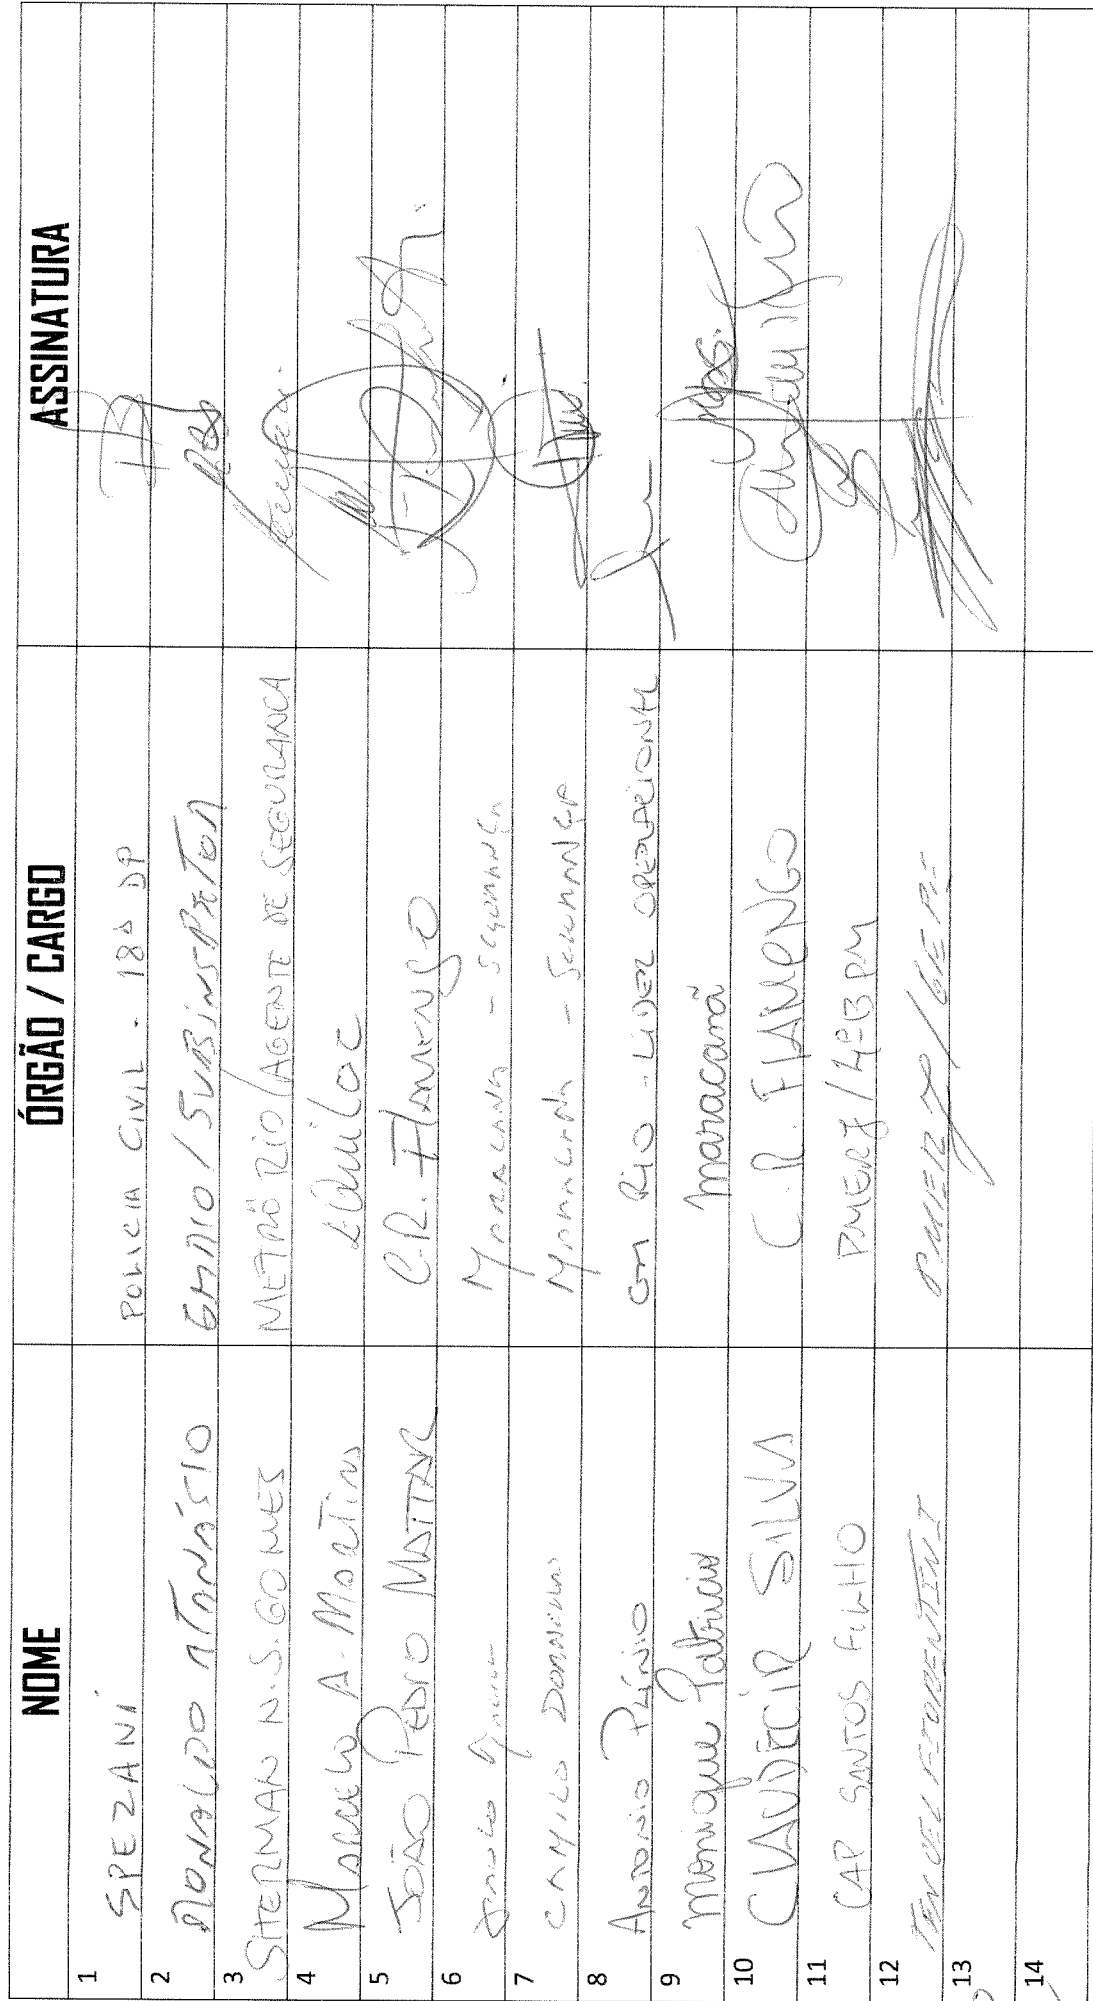 NOME ÓRGÃO / CARGO ASSINATURA
1 SPEZANI POLICIA CIVIL - 18ª DP
2 RONALDO ATANÁSIO GMRIO / SUBINSPETOR
3 SITERMAN N.S. GOMES METRÔ RIO / AGENTE DE SEGURANCA
4 MARCELO A. MARTINS
5 JOÃO PEDRO MATTAR C.R. FLAMENGO
6 MARACANA - SEGURANÇA
7 CAMILO MARACANA - SEGURANÇA
8 ANTONIO PLÍNIO RIO - LIDER OPERACIONAL
9 Monique Patricia maracanã
10 CLAUDECIR SILVA C.R. FLAMENGO
11 CAP SANTOS FILHO PMERJ / 4º BPM
12 TEN CEL PMERJ / GEPE
13
14